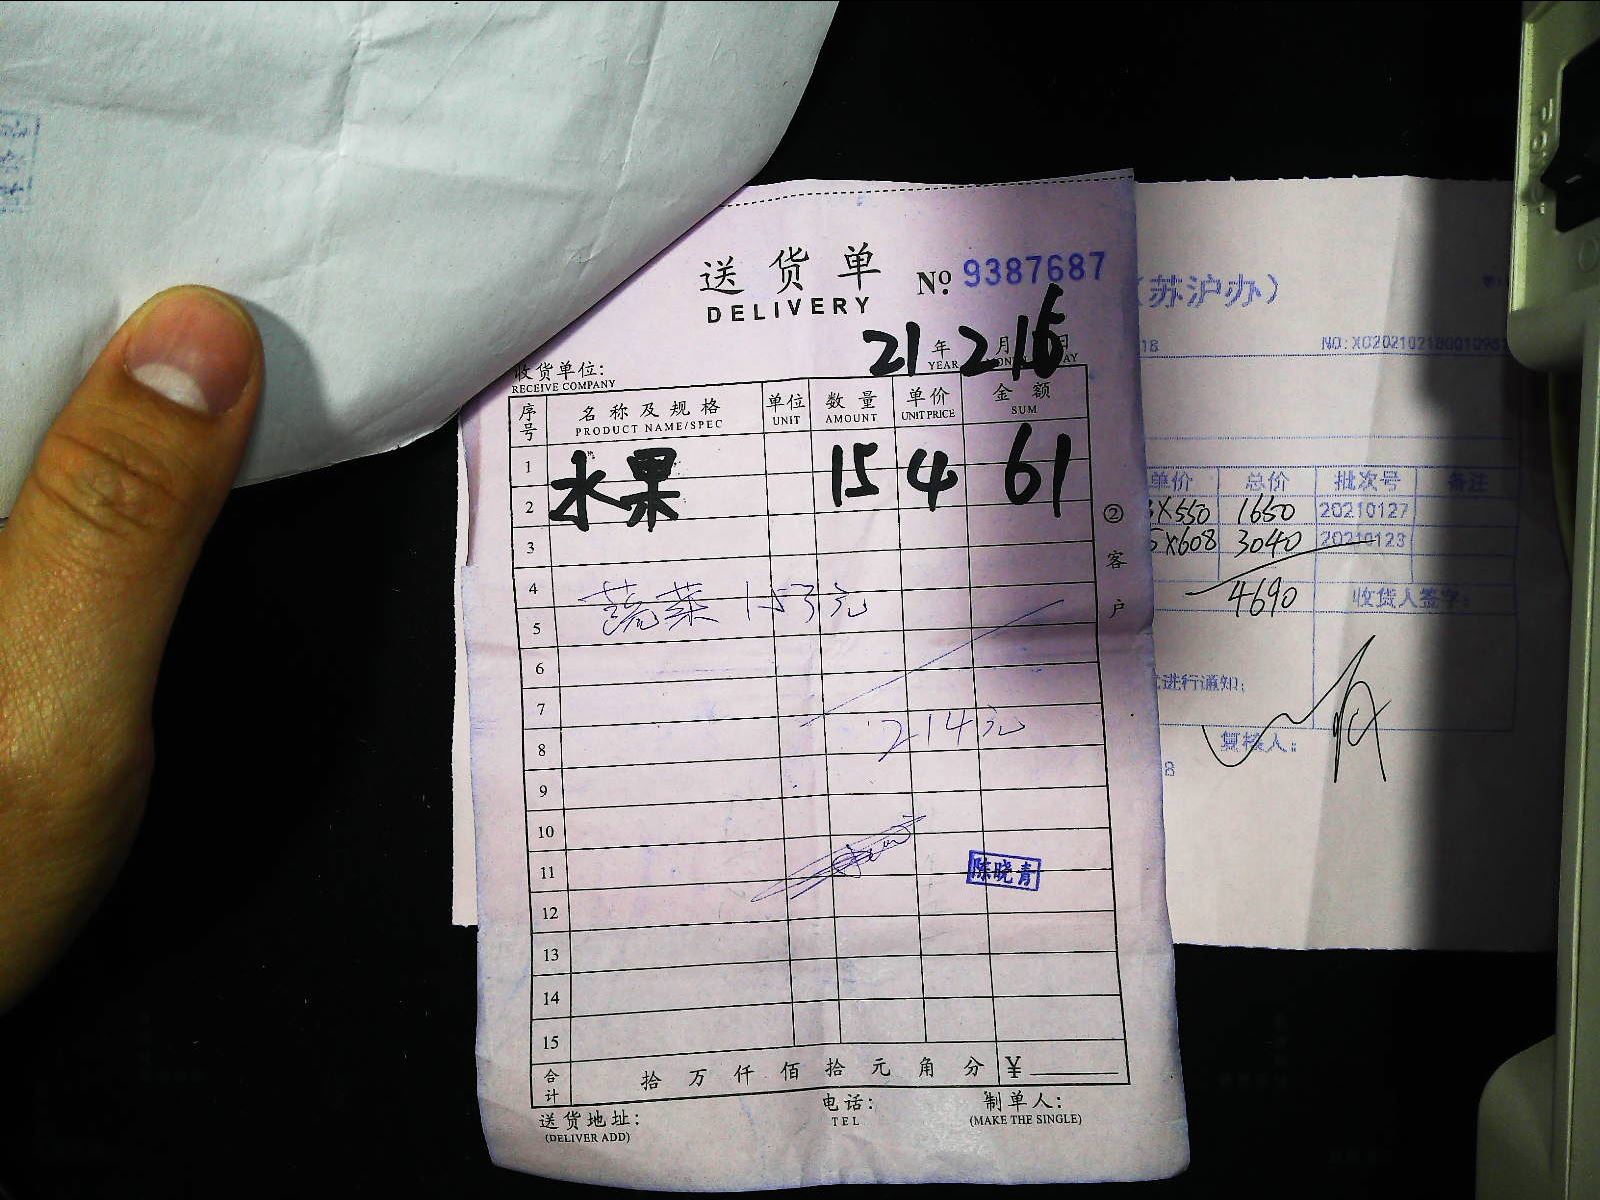 送货单
DELIVERY
№ 9387687
21年 2月 16日
YEAR
收货单位:
RECEIVE COMPANY
序号 名称及规格 单位 数量 单价 金额
PRODUCT NAME/SPEC UNIT AMOUNT UNIT PRICE SUM
1
水果 15 4 61
2
3
4
蔬菜 153元
5
6
7
214元
8
9
10
11
陈晓青
12
13
14
15
合计 拾 万 仟 佰 拾 元 角 分 ¥
送货地址: 电话: 制单人:
(DELIVER ADD) TEL (MAKE THE SINGLE)
②客户
(苏沪办)
单价 总价 批次号 备注
×550 1650 20210127
×608 3040 20210123
4690 收货人签字:
进行通知;
复核人: